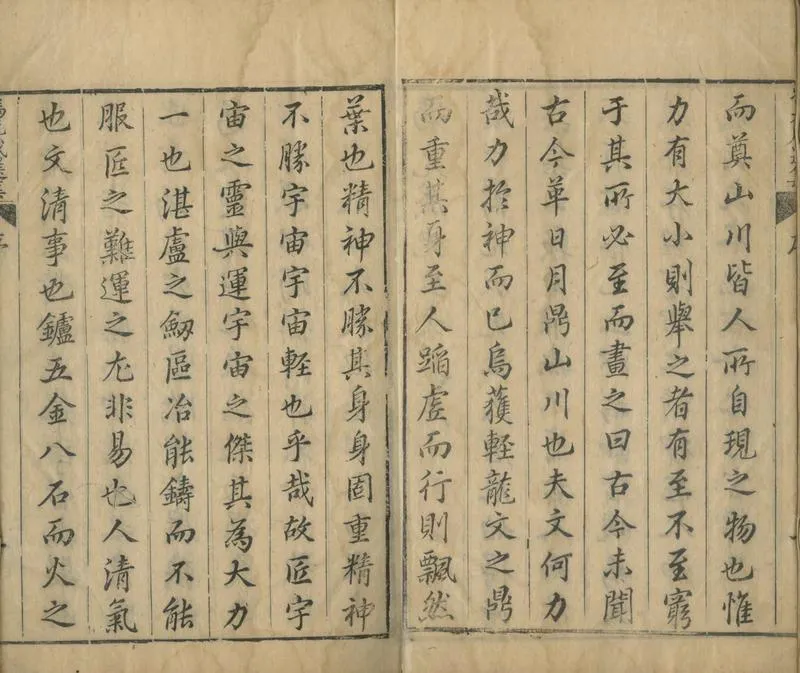 而奠山川皆人所自現之物也惟
力有大小則舉之者有至不至窮
于其所必至而畫之曰古今未聞
古今革日月鼎山川也夫文何力
哉力於神而已烏獲輕龍文之鼎
而重其身至人蹈虛而行則飄然
葉也精神不勝其身身固重精神
不勝宇宙宇宙軽也乎哉故匠宇
宙之靈與運宇宙之傑其為大力
一也湛盧之劒區冶能鑄而不能
服匠之難運之尤非易也人清氣
也文清事也鑪五金八石而火之